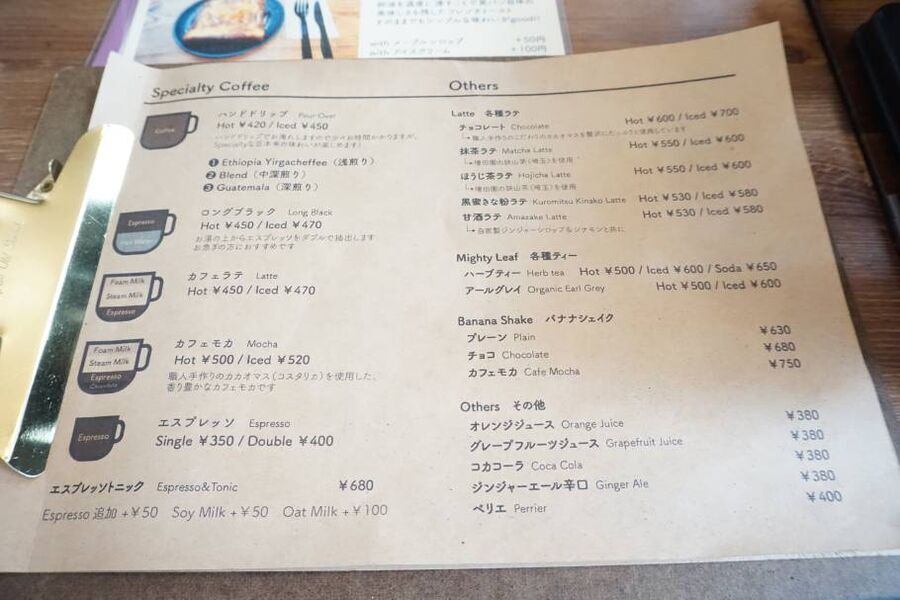 with メープルシロップ +50円
with アイスクリーム +100円
Specialty Coffee
Coffee
ハンドドリップ Pour Over
Hot ¥420 / Iced ¥450
❶ Ethiopia Yirgacheffee（浅煎り）
❷ Blend（中深煎り）
❸ Guatemala（深煎り）
Espresso
Hot Water
ロングブラック Long Black
Hot ¥450 / Iced ¥470
お湯の上からエスプレッソをダブルで抽出します
お急ぎの方におすすめです
Foam Milk
Steam Milk
Espresso
カフェラテ Latte
Hot ¥450 / Iced ¥470
Foam Milk
Steam Milk
Espresso
Chocolate
カフェモカ Mocha
Hot ¥500 / Iced ¥520
職人手作りのカカオマス（コスタリカ）を使用した、
香り豊かなカフェモカです
Espresso
エスプレッソ Espresso
Single ¥350 / Double ¥400
エスプレッソトニック Espresso&Tonic ¥680
Espresso 追加 +¥50 Soy Milk +¥50 Oat Milk +¥100
Others
Latte 各種ラテ
チョコレート Chocolate Hot ¥600 / Iced ¥700
職人手作りのこだわりのカカオマスを贅沢にたっぷりと使用しています
抹茶ラテ Matcha Latte Hot ¥550 / Iced ¥600
ほうじ茶ラテ Hojicha Latte Hot ¥550 / Iced ¥600
黒蜜きな粉ラテ Kuromitsu Kinako Latte Hot ¥530 / Iced ¥580
甘酒ラテ Amazake Latte Hot ¥530 / Iced ¥580
自家製ジンジャーシロップ&シナモンと共に
Mighty Leaf 各種ティー
ハーブティー Herb tea Hot ¥500 / Iced ¥600 / Soda ¥650
アールグレイ Organic Earl Grey Hot ¥500 / Iced ¥600
Banana Shake バナナシェイク
プレーン Plain ¥630
チョコ Chocolate ¥680
カフェモカ Cafe Mocha ¥750
Others その他
オレンジジュース Orange Juice ¥380
グレープフルーツジュース Grapefruit Juice ¥380
コカコーラ Coca Cola ¥380
ジンジャーエール辛口 Ginger Ale ¥380
ペリエ Perrier ¥400